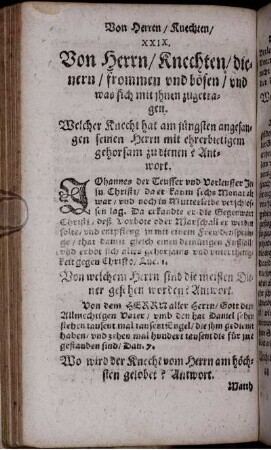 Von Herren / Knechten /
XXIX.
Von Herrn / Knechten / die-
nern / frommen vnd bösen / vnd
was sich mit jhnen zugetra-
gen.
Welcher Knecht hat am jüngsten angefan-
gen seinen Herrn mit ehrerbietigem
gehorsam zu dienen? Ant-
wort.
JOhannes der Teuffer vnd Vorleuffer Je-
su Christi / da er kaum sechs Monat alt
war / vnd noch in Mutterleibe verschlos-
sen lag. Da erkandte er die Gegenwart
Christi / deß Vorbote oder Marschalk er werden
solte / vnd entpfieng in mit einem Frewdensprun-
ge / that damit gleich einen demütigen Fußfall
vnd erbot sich alles gehorsams vnd vnterthenig-
keit gegen Christo / Luc. 1.
Von welchem Herrn sind die meisten Die-
ner gesehen worden? Antwort.
Von dem HERRN aller Herrn / Gott dem
Allmechtigen Vater / vmb den hat Daniel sehen
stehen tausent mal tausent Engel / die ihm gedienet
haben / vnd zehen mal hundert tausent die für jm
gestanden sind / Dan. 7.
Wo wird der Knecht vom Herrn am höch-
sten gelobet? Antwort.
Matth